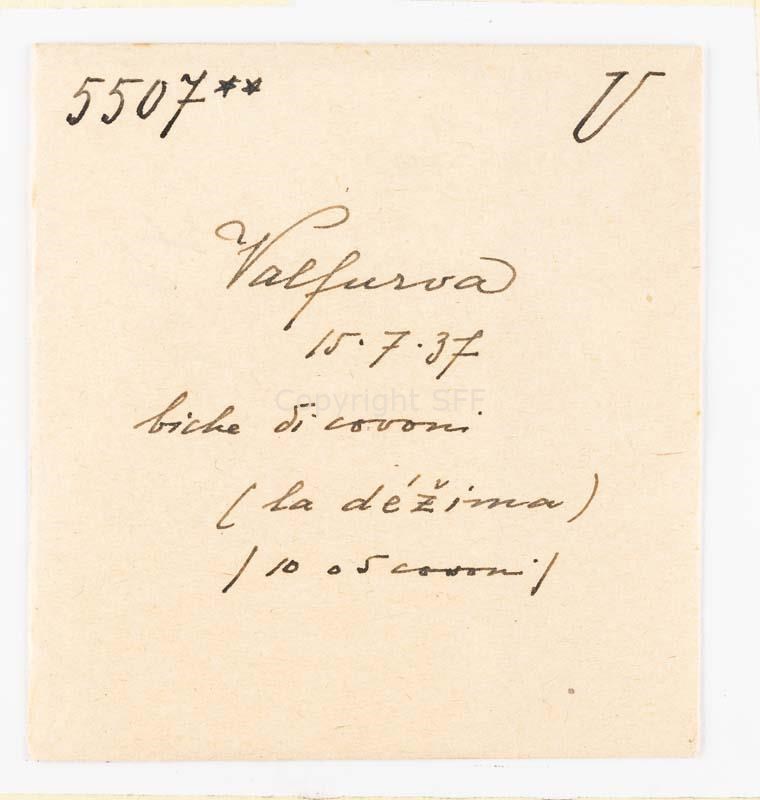 5507** V
Valfurva
15.7.37
Copyright SFF
biche di covoni
(la déžima)
/ 10 o 5 covoni /